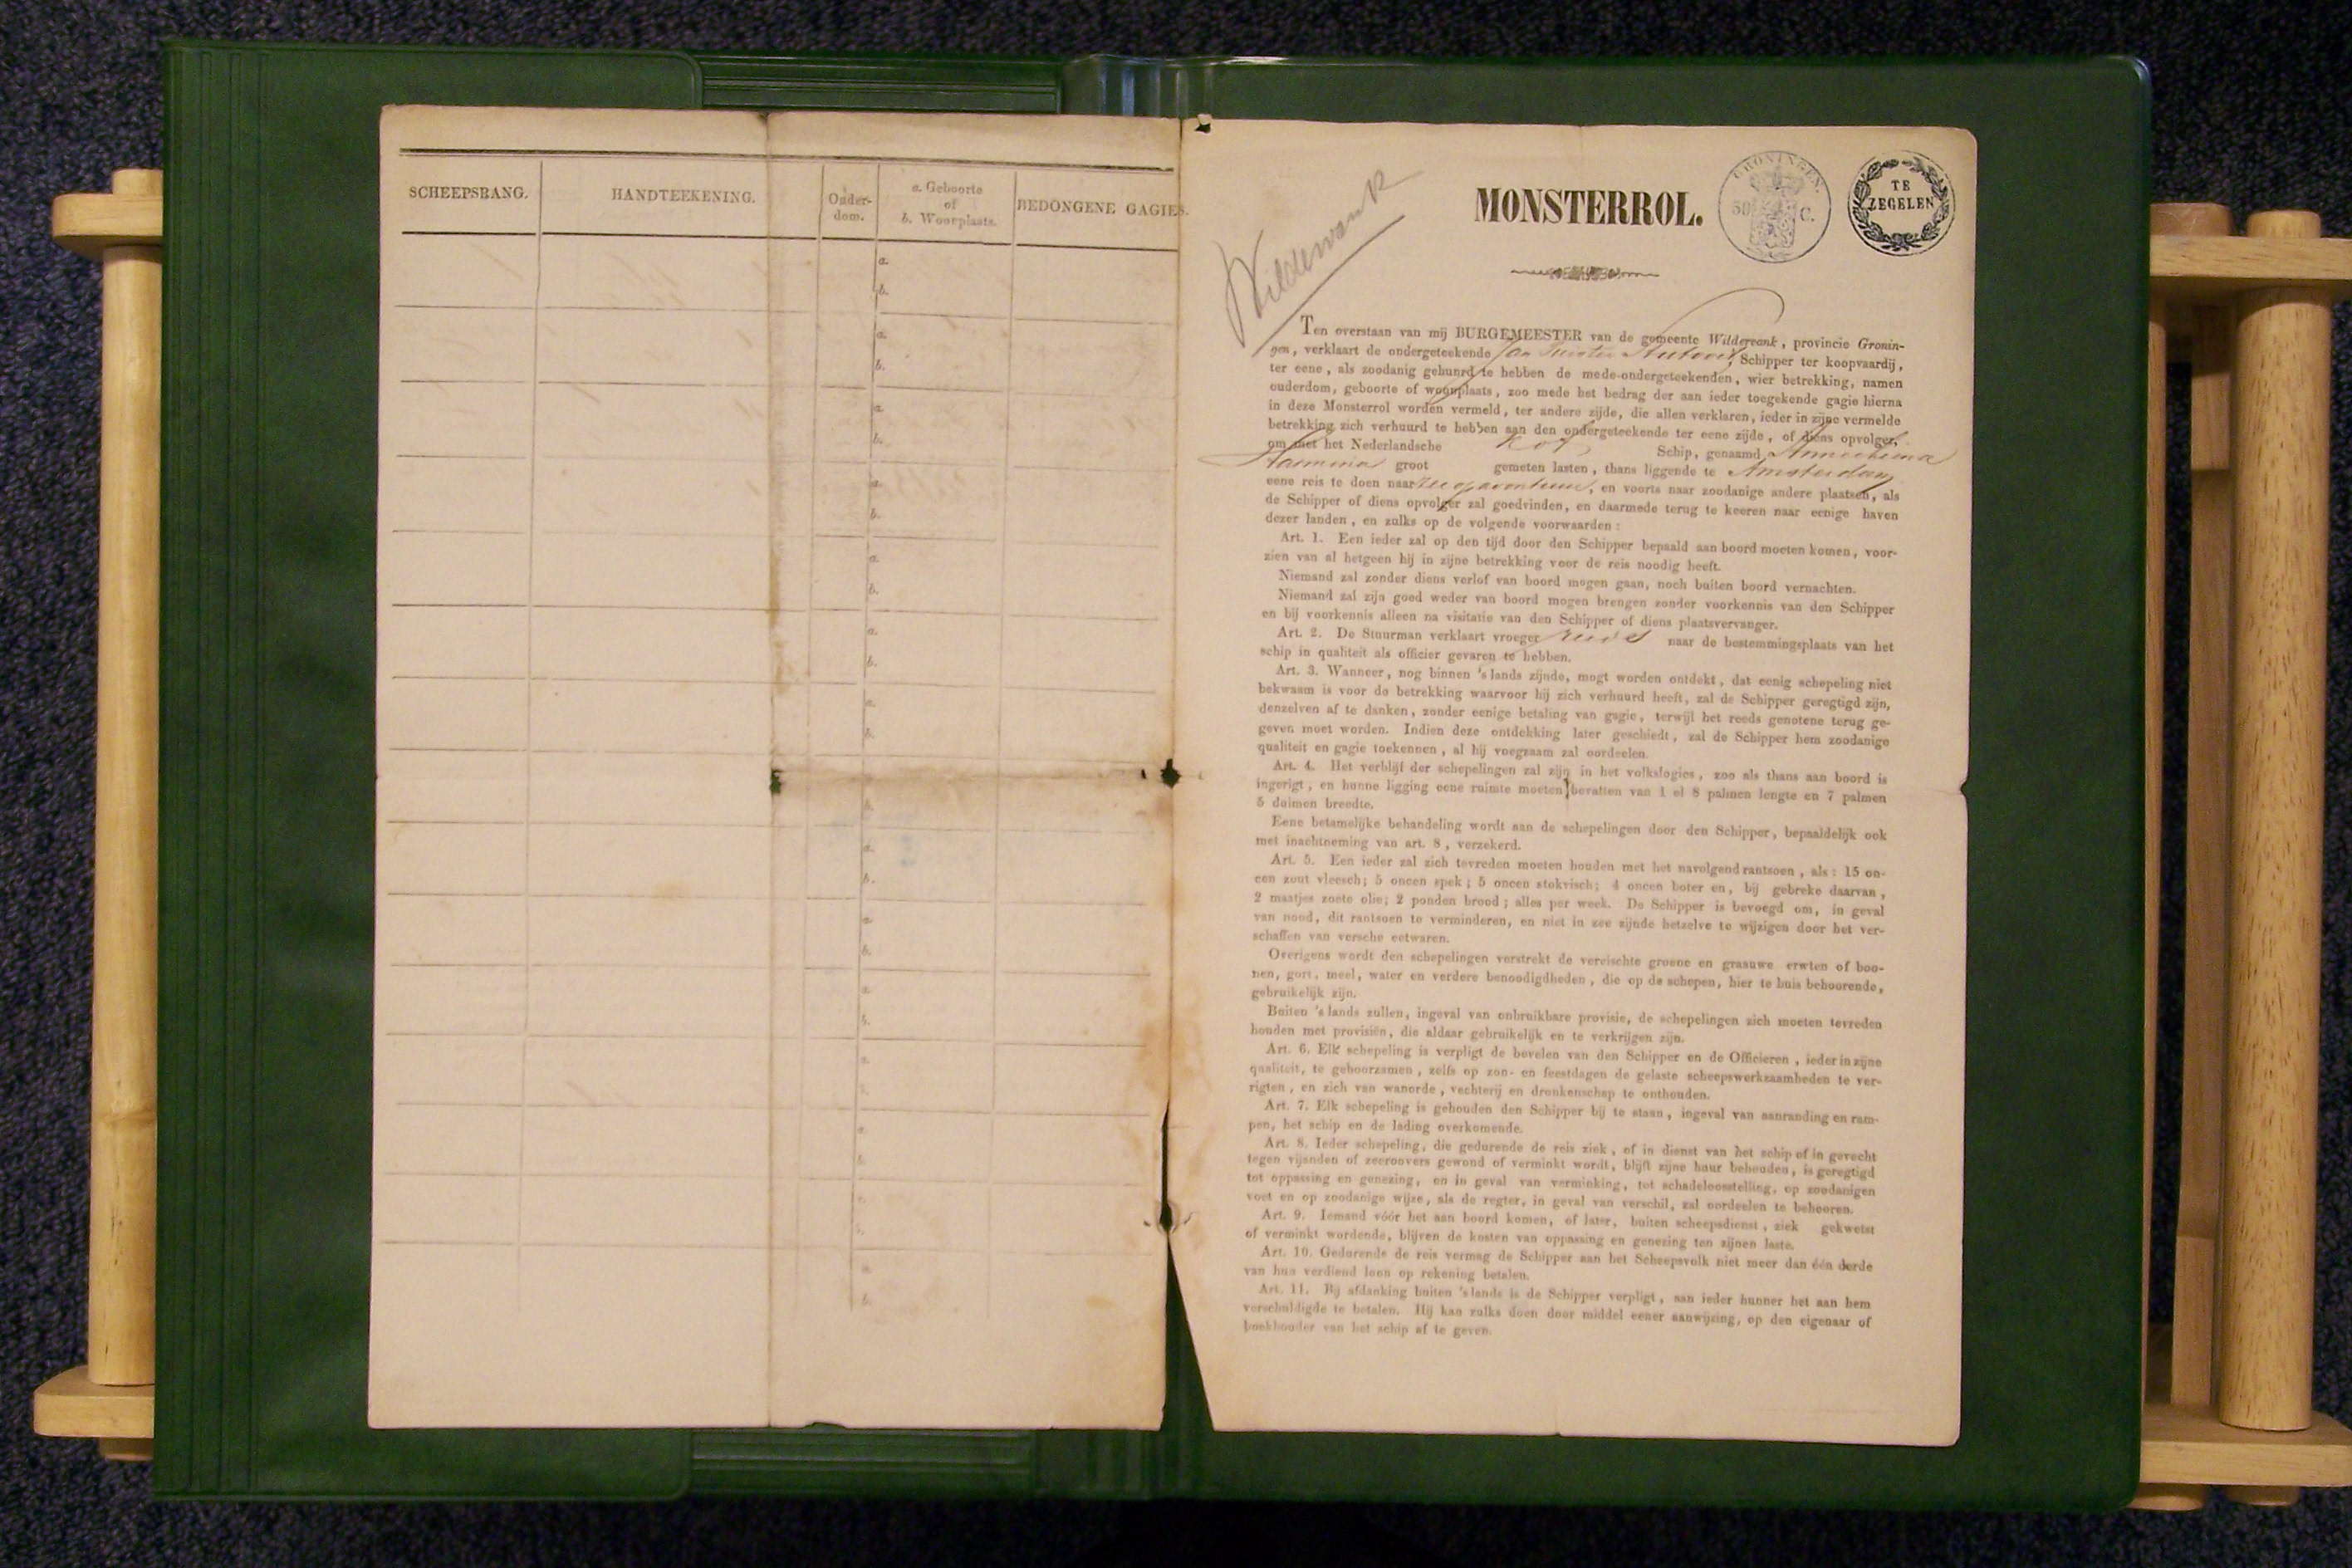 SCHEEPSRANG.
HANDTEEKENING.
Ouder-
dom.
a. Geboorte
of
b. Woonplaats.
BEDONGENE GAGIES.
a.
b.
a.
b.
a.
b.
a.
b.
a.
b.
a.
b.
a.
b.
b.
a.
b.
a.
b.
a.
b.
a.
a.
b.
a.
b.
Wildervank
MONSTERROL.
GRONINGEN.
50 C.
TE
ZEGELEN
Ten overstaan van mij BURGEMEESTER van de gemeente Wildervank, provincie Gronin-
gen, verklaart de ondergeteekende Jan, Schipper ter koopvaardij,
ter eene, als zoodanig gehuurd te hebben de mede-ondergeteekenden, wier betrekking, namen
ouderdom, geboorte of woonplaats, zoo mede het bedrag der aan ieder toegekende gagie hierna
in deze Monsterrol worden vermeld, ter andere zijde, die allen verklaren, ieder in zijne vermelde
betrekking zich verhuurd te hebben aan den ondergeteekende ter eene zijde, of diens opvolger,
om met het Nederlandsche Kof Schip, genaamd Annechiena
Harmina groot gemeten lasten, thans liggende te Amsterdam
eene reis te doen naar, en voorts naar zoodanige andere plaatsen, als
de Schipper of diens opvolger zal goedvinden, en daarmede terug te keeren naar eenige haven
dezer landen, en zulks op de volgende voorwaarden:
Art. 1. Een ieder zal op den tijd door den Schipper bepaald aan boord moeten komen, voor-
zien van al hetgeen hij in zijne betrekking voor de reis noodig heeft.
Niemand zal zonder diens verlof van boord mogen gaan, noch buiten boord vernachten.
Niemand zal zijn goed weder van boord mogen brengen zonder voorkennis van den Schipper
en bij voorkennis alleen na visitatie van den Schipper of diens plaatsvervanger.
Art. 2. De Stuurman verklaart vroeger reeds naar de bestemmingsplaats van het
schip in qualiteit als officier gevaren te hebben.
Art. 3. Wanneer, nog binnen 's lands zijnde, mogt worden ontdekt, dat eenig schepeling niet
bekwaam is voor de betrekking waarvoor hij zich verhuurd heeft, zal de Schipper geregtigd zijn,
denzelven af te danken, zonder eenige betaling van gagie, terwijl het reeds genotene terug ge-
geven moet worden. Indien deze ontdekking later geschiedt, zal de Schipper hem zoodanige
qualiteit en gagie toekennen, al hij voegzaam zal oordeelen.
Art. 4. Het verblijf der schepelingen zal zijn in het volkslogies, zoo als thans aan boord is
ingerigt, en hunne ligging eene ruimte moeten bevatten van 1 el 8 palmen lengte en 7 palmen
5 duimen breedte.
Eene betamelijke behandeling wordt aan de schepelingen door den Schipper, bepaaldelijk ook
met inachtneming van art. 8, verzekerd.
Art. 5. Een ieder zal zich tevreden moeten houden met het navolgend rantsoen, als: 15 on-
cen zout vleesch; 5 oncen spek; 5 oncen stokvisch; 4 oncen boter en, bij gebreke daarvan,
2 maatjes zoete olie; 2 ponden brood; alles per week. De Schipper is bevoegd om, in geval
van nood, dit rantsoen te verminderen, en niet in zee zijnde hetzelve te wijzigen door het ver-
schaffen van versche eetwaren.
Overigens wordt den schepelingen verstrekt de vereischte groene en graauwe erwten of boo-
nen, gort, meel, water en verdere benoodigdheden, die op de schepen, hier te huis behoorende,
gebruikelijk zijn.
Buiten 's lands zullen, ingeval van onbruikbare provisie, de schepelingen zich moeten tevreden
houden met provisiën, die aldaar gebruikelijk en te verkrijgen zijn.
Art. 6. Elk schepeling is verpligt de bevelen van den Schipper en de Officieren, ieder in zijne
qualiteit, te gehoorzamen, zelfs op zon- en feestdagen de gelaste scheepswerkzaamheden te ver-
rigten, en zich van wanorde, vechterij en dronkenschap te onthouden.
Art. 7. Elk schepeling is gehouden den Schipper bij te staan, ingeval van aanranding en ram-
pen, het schip en de lading overkomende.
Art. 8. Ieder schepeling, die gedurende de reis ziek, of in dienst van het schip of in gevecht
tegen vijanden of zeeroovers gewond of verminkt wordt, blijft zijne huur behouden, is geregtigd
tot oppassing en genezing, en in geval van verminking, tot schadeloosstelling, op zoodanigen
voet en op zoodanige wijze, als de regter, in geval van verschil, zal oordeelen te behooren.
Art. 9. Iemand vóór het aan boord komen, of later, buiten scheepsdienst, ziek gekwetst
of verminkt wordende, blijven de kosten van oppassing en genezing ten zijnen laste.
Art. 10. Gedurende de reis vermag de Schipper aan het Scheepsvolk niet meer dan één derde
van hun verdiend loon op rekening betalen.
Art. 11. Bij afdanking buiten 's lands is de Schipper verpligt, aan ieder hunner het aan hem
verschuldigde te betalen. Hij kan zulks doen door middel eener aanwijzing, op den eigenaar of
boekhouder van het schip af te geven.